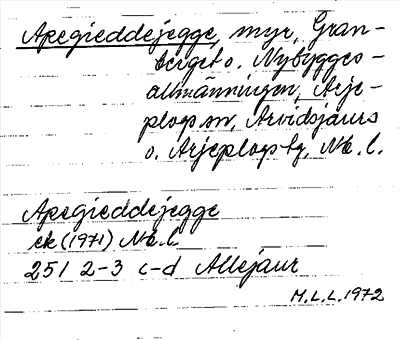 Apegieddejegge, myr, Gran-
berget o. Nybygges-
allmänningen, Arje-
plogs sn, Arvidsjaurs
o. Arjeplogs tg, Nb. l.
Apegieddejegge
ek (1971) Nb. l.
25I 2-3 c-d Allejaur
M.L.L. 1972